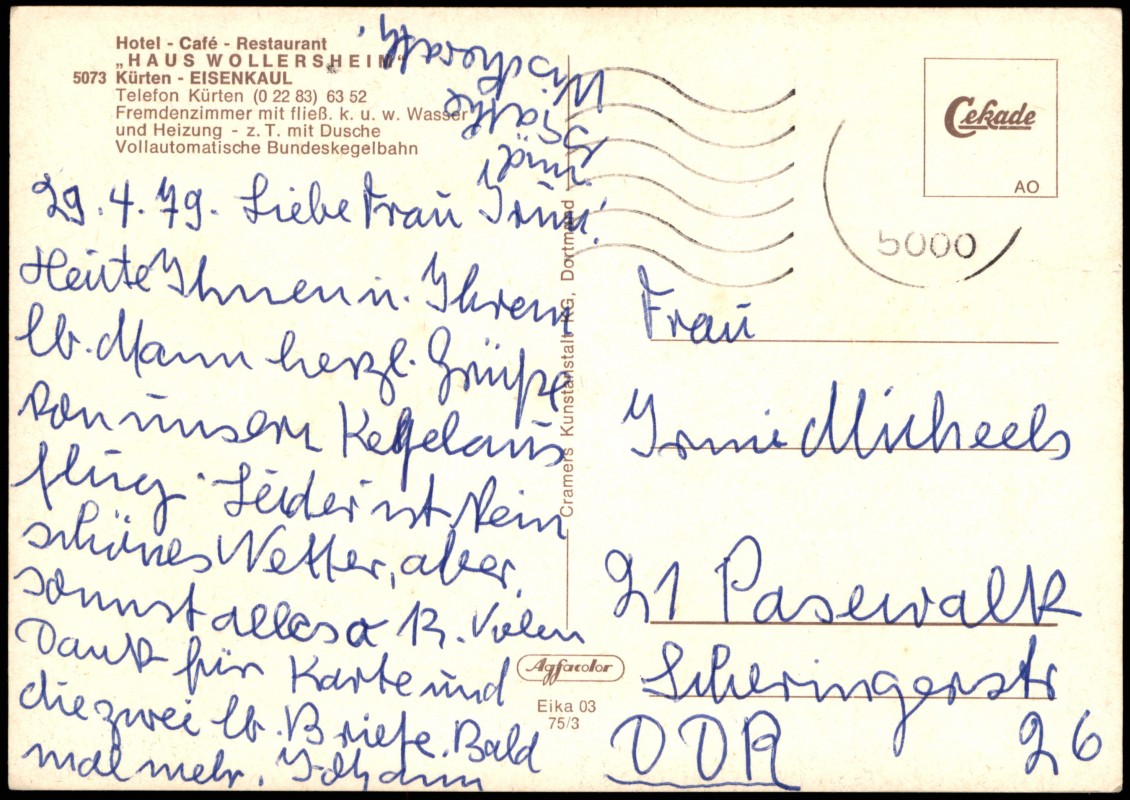 Hotel - Café - Restaurant
„HAUS WOLLERSHEIM“
5073 Kürten - EISENKAUL
Telefon Kürten (0 22 83) 63 52
Fremdenzimmer mit fließ. k. u. w. Wasser
und Heizung - z. T. mit Dusche
Vollautomatische Bundeskegelbahn
29.4.79. Liebe Frau Irmi!
Heute Ihnen u. Ihrem
lb. Mann herzl. Grüße
von unserm Kegelaus
flug. Leider ist kein
schönes Wetter, aber
sonnst alles o k. Vielen
Dank für Karte und
die zwei lb. Briefe. Bald
mal mehr. Johann
und
Käthe
Cramers Kunstanstalt KG, Dortmund
Agfacolor
Eika 03
75/3
Cekade
AO
5000
Frau
Irmi Micheels
21 Pasewalk
Scheringerstr
26
DDR